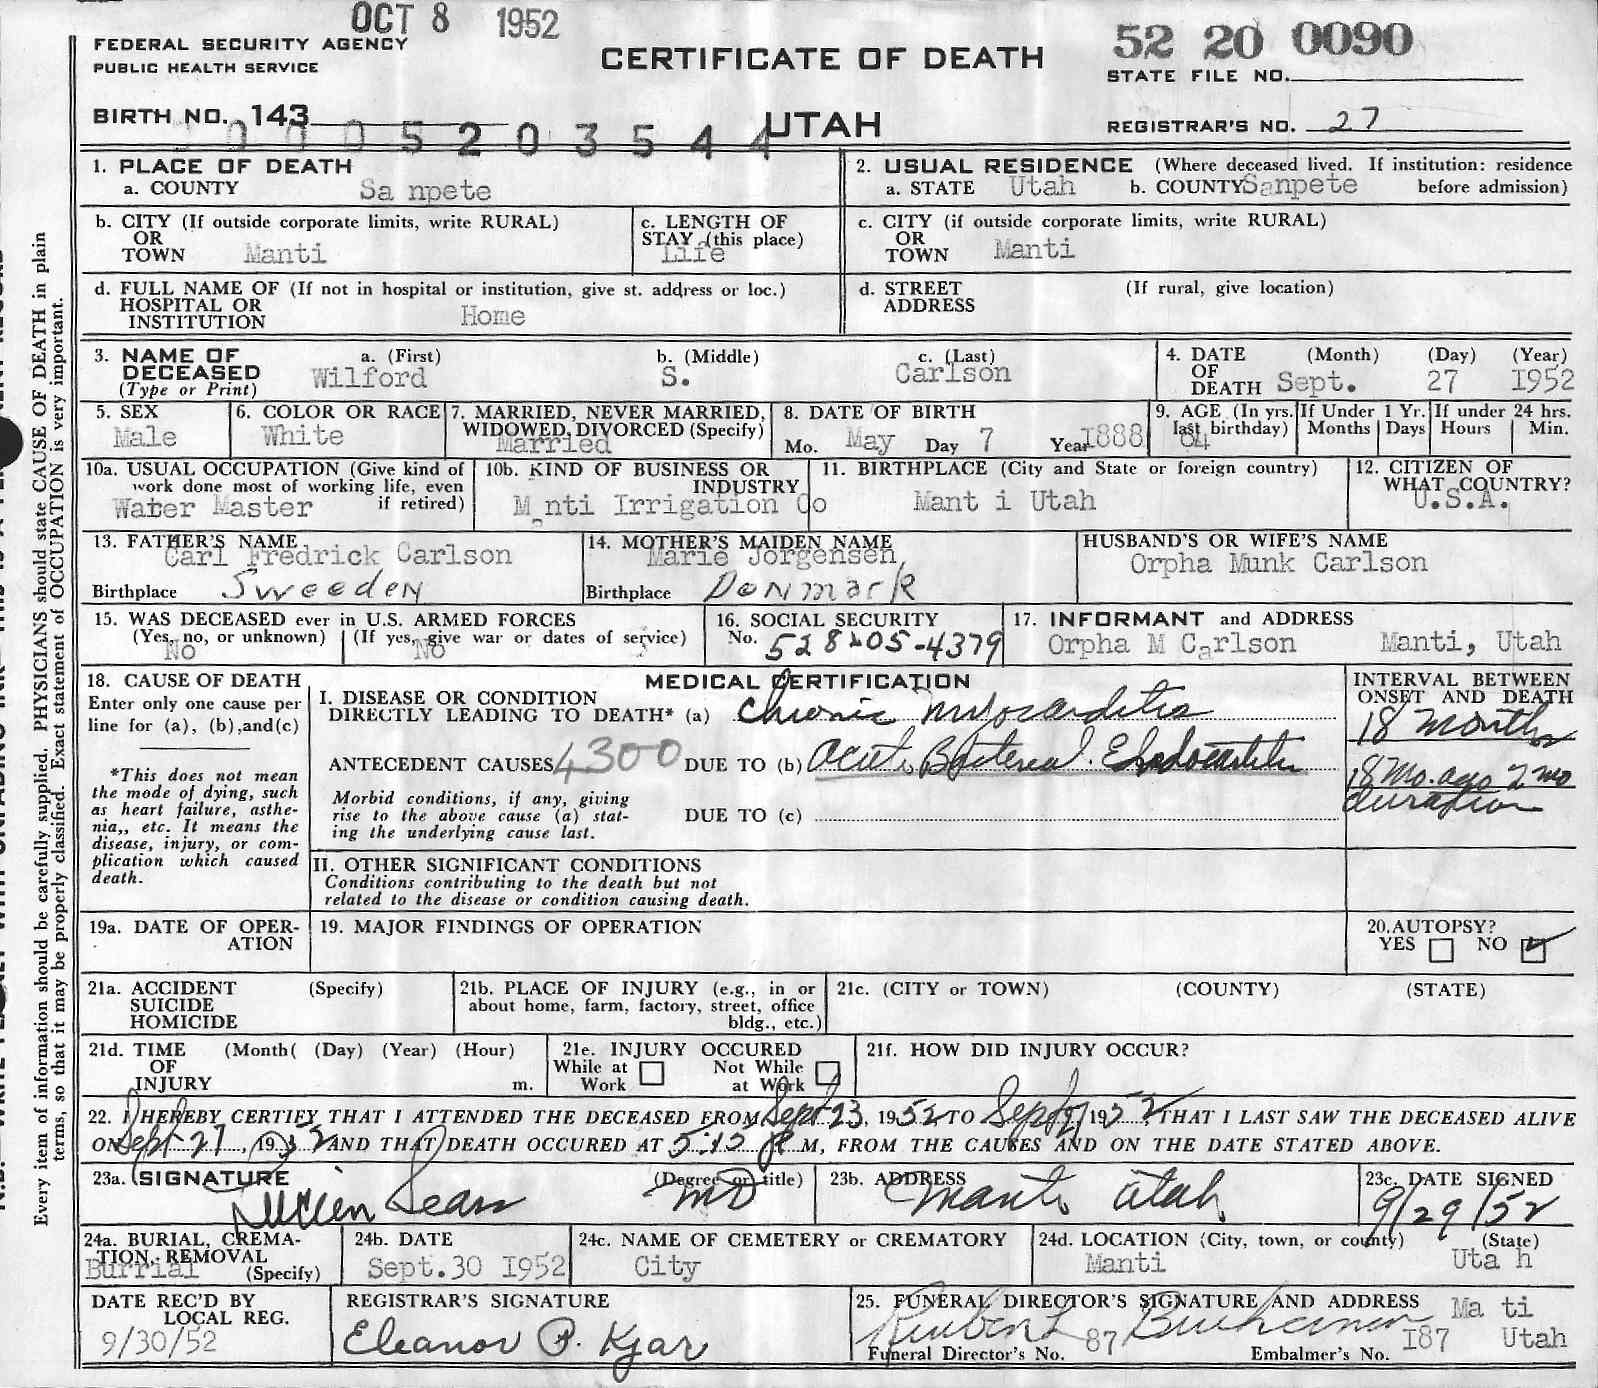 OCT 8 1952
FEDERAL SECURITY AGENCY
PUBLIC HEALTH SERVICE
CERTIFICATE OF DEATH
52 20 0090
STATE FILE NO.
BIRTH NO. 143
UTAH
REGISTRAR'S NO. 27
1. PLACE OF DEATH
a. COUNTY Sa npete
2. USUAL RESIDENCE (Where deceased lived. If institution: residence before admission)
a. STATE Utah b. COUNTY Sanpete
b. CITY (If outside corporate limits, write RURAL)
OR
TOWN Manti
c. LENGTH OF
STAY (this place)
Life
c. CITY (if outside corporate limits, write RURAL)
OR
TOWN Manti
d. FULL NAME OF (If not in hospital or institution, give st. address or loc.)
HOSPITAL OR
INSTITUTION Home
d. STREET (If rural, give location)
ADDRESS
3. NAME OF
DECEASED
(Type or Print)
a. (First) Wilford
b. (Middle) S.
c. (Last) Carlson
4. DATE (Month) (Day) (Year)
OF
DEATH Sept. 27 1952
5. SEX
Male
6. COLOR OR RACE
White
7. MARRIED, NEVER MARRIED,
WIDOWED, DIVORCED (Specify)
Married
8. DATE OF BIRTH
Mo. May Day 7 Year 1888
9. AGE (In yrs.
last birthday)
64
If Under 1 Yr.
Months Days
If under 24 hrs.
Hours Min.
10a. USUAL OCCUPATION (Give kind of
work done most of working life, even
if retired)
Water Master
10b. KIND OF BUSINESS OR
INDUSTRY
M nti Irrigation Co
11. BIRTHPLACE (City and State or foreign country)
Mant i Utah
12. CITIZEN OF
WHAT COUNTRY?
U.S.A.
13. FATHER'S NAME
Carl Fredrick Carlson
Birthplace Sweeden
14. MOTHER'S MAIDEN NAME
Marie Jorgensen
Birthplace Denmark
HUSBAND'S OR WIFE'S NAME
Orpha Munk Carlson
15. WAS DECEASED ever in U.S. ARMED FORCES
(Yes, no, or unknown) (If yes, give war or dates of service)
No No
16. SOCIAL SECURITY
No. 528-05-4379
17. INFORMANT and ADDRESS
Orpha M Carlson Manti, Utah
18. CAUSE OF DEATH
Enter only one cause per
line for (a), (b),and(c)
*This does not mean
the mode of dying, such
as heart failure, asthe-
nia,, etc. It means the
disease, injury, or com-
plication which caused
death.
MEDICAL CERTIFICATION
I. DISEASE OR CONDITION
DIRECTLY LEADING TO DEATH* (a) Chronic Myocarditis
ANTECEDENT CAUSES 4300 DUE TO (b) Acute Bacterial Endocarditis
Morbid conditions, if any, giving
rise to the above cause (a) stat-
ing the underlying cause last.
DUE TO (c)
INTERVAL BETWEEN
ONSET AND DEATH
18 Months
18 Mo. ago 2 mo
duration
II. OTHER SIGNIFICANT CONDITIONS
Conditions contributing to the death but not
related to the disease or condition causing death.
19a. DATE OF OPER-
ATION
19. MAJOR FINDINGS OF OPERATION
20. AUTOPSY?
YES NO
21a. ACCIDENT (Specify)
SUICIDE
HOMICIDE
21b. PLACE OF INJURY (e.g., in or
about home, farm, factory, street, office
bldg., etc.)
21c. (CITY or TOWN) (COUNTY) (STATE)
21d. TIME (Month( (Day) (Year) (Hour)
OF
INJURY m.
21e. INJURY OCCURED
While at Not While
Work at Work
21f. HOW DID INJURY OCCUR?
22. I HEREBY CERTIFY THAT I ATTENDED THE DECEASED FROM Sept 23, 1952 TO Sept 27 1952, THAT I LAST SAW THE DECEASED ALIVE
ON Sept 27, 1952 AND THAT DEATH OCCURED AT 5:12 P M, FROM THE CAUSES AND ON THE DATE STATED ABOVE.
23a. SIGNATURE (Degree or title)
Lucien Sears MD
23b. ADDRESS
Manti Utah
23c. DATE SIGNED
9/29/52
24a. BURIAL, CREMA-
TION, REMOVAL
(Specify)
Burrial
24b. DATE
Sept.30 1952
24c. NAME OF CEMETERY or CREMATORY
City
24d. LOCATION (City, town, or county) (State)
Manti Uta h
DATE REC'D BY
LOCAL REG.
9/30/52
REGISTRAR'S SIGNATURE
Eleanor P. Kjar
25. FUNERAL DIRECTOR'S SIGNATURE AND ADDRESS Ma ti
Utah
Funeral Director's No. 87
Embalmer's No. 187
Every item of information should be carefully supplied. PHYSICIANS should state CAUSE OF DEATH in plain
terms, so that it may be properly classified. Exact statement of OCCUPATION is very important.